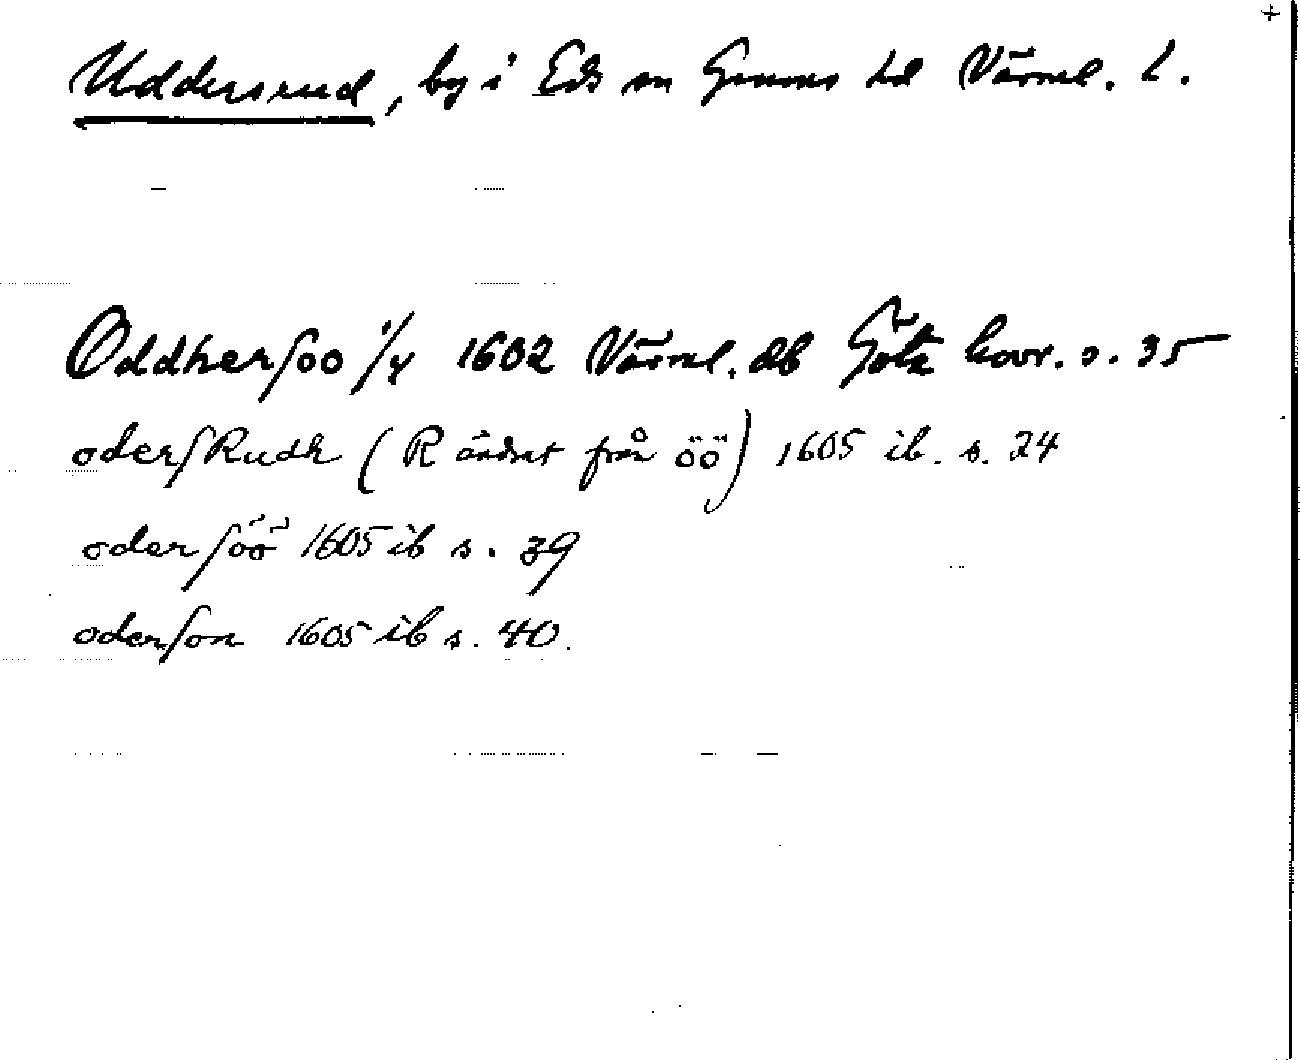 +
Uddersrud, by i Eds sn Grums hd Värml. L.
Oddherſoo 1/4 1602 Värml. db Göta hovr. s. 35
oderſRudh (R ändrat från öö) 1605 ib. s. 24
oderſöö 1605 ib s. 39
oderſon 1605 ib s. 40.